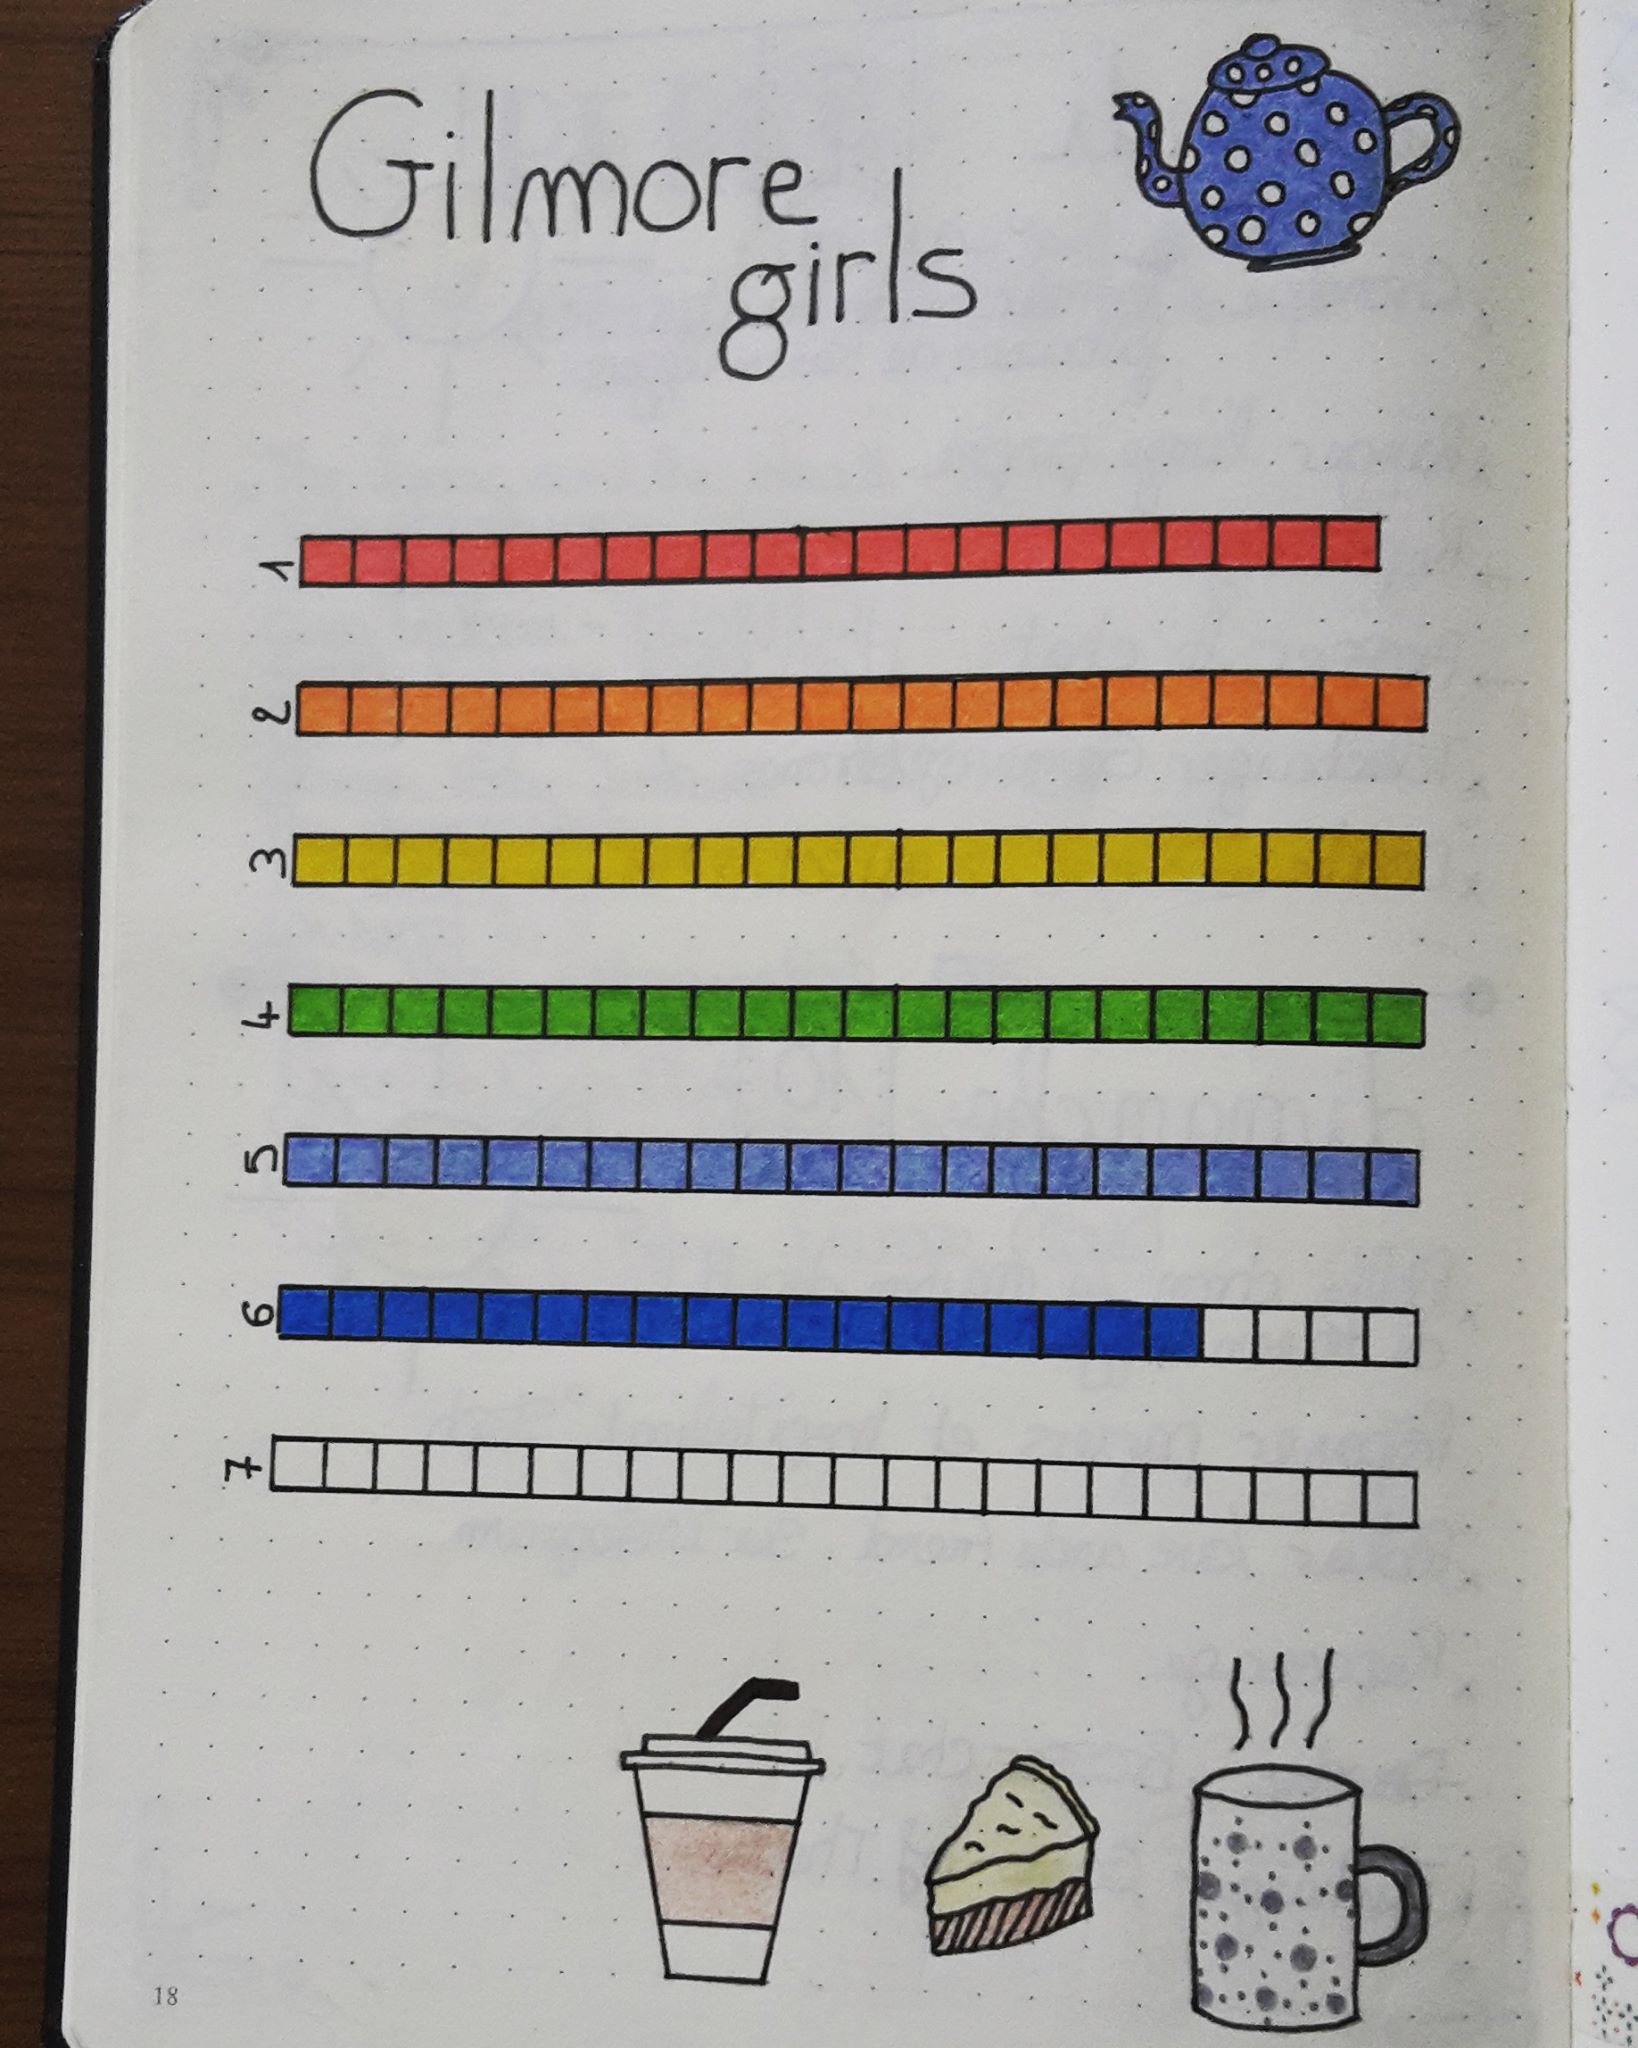 Gilmore
girls
1
2
3
4
5
6
7
18